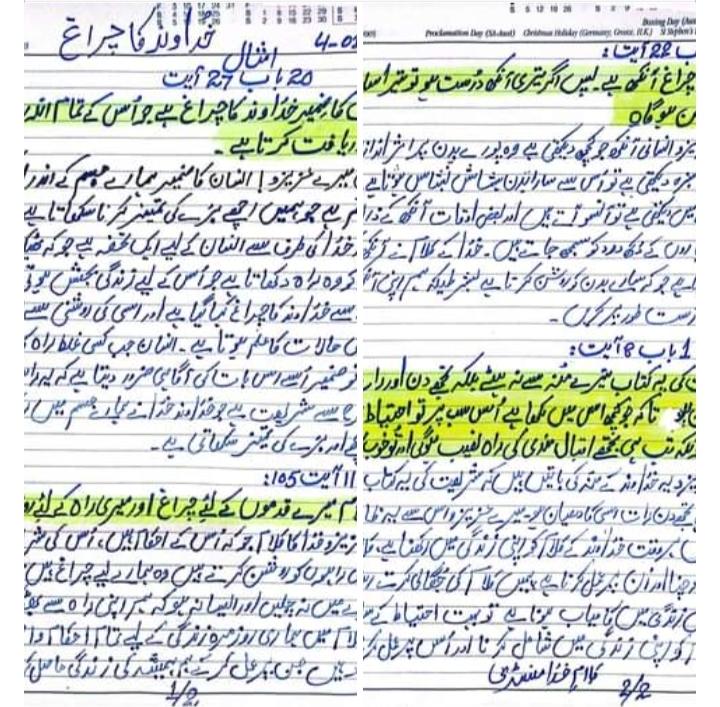 خداوند کا چراغ
امثال
20 باب 27 آیت
کا ضمیر خداوند کا چراغ ہے جو اُس کے تمام اندر
دریافت کرتا ہے۔
میرے عزیزو! انسان کا ضمیر ہمارے جسم کے اندر
ہے جو ہمیں اچھے بُرے کی تمیز کرنا سکھاتا ہے
خدا کی طرف سے انسان کے لیے ایک تحفہ ہے جو کہ
کو وہ راہ دکھاتا ہے جو اُس کے لیے زندگی بخش ہوتی
سے خداوند کا چراغ کہا گیا ہے اور اسی کی روشنی سے
حالات کا علم ہوتا ہے۔ انسان جب کسی غلط راہ
تو ضمیر اُسے اس بات کی آگاہی ضرور دیتا ہے کہ یہ راہ
سے شریعت ہے جو خداوند خدا نے ہمارے جسم میں
اور بُرے کی تمیز سکھاتی ہے۔
آیت 105:
میرے قدموں کے لئے چراغ اور میری راہ کے لئے
عزیزو خدا کا کلام جو کہ اُس کے احکام ہیں، اُس کی
راہوں کو روشن کرتے ہیں وہ ہمارے لیے چراغ ہیں
میں نہ چلیں اور ایسا نہ ہو کہ ہم اپنی راہ سے
کلام میں ہماری روزمرہ زندگی کے لیے تمام احکام
ہیں جن پر عمل کر کے ہم ہمیشہ کی زندگی حاصل
1/2
Boxing Day
Proclamation Day (SA-Aust) Christmas Holiday (Germany, Greece, H.K.) St Stephen's
باب 22 آیت:
چراغ آنکھ ہے۔ پس اگر تیری آنکھ درست ہو تو تیرا سا
ہوگا۔
عزیزو انسانی آنکھ جو کچھ دیکھتی ہے وہ پورے بدن پر اثر انداز
دیکھتی ہے تو اُس سے سارا بدن ہشاش بشاش ہوتا ہے
میں دیکھتی ہے تو آنسو آتے ہیں اور بعض اوقات آنکھ کے ذر
کے دُکھ درد کو سمجھ جاتے ہیں۔ خدا کے کلام نے آنکھ
ہے جو کہ ہمارے بدن کو روشن کرتا ہے بشرطیکہ ہم اپنی آ
درست طور پر کریں۔
1 باب 8 آیت:
کی یہ کتاب تیرے منہ سے نہ ہٹے بلکہ تجھے دن اور رات
ہو تاکہ جو کچھ اس میں لکھا ہے اُس سب پر تو احتیاط
کیونکہ تب ہی تجھے اقبال مندی کی راہ نصیب ہوگی اور تُو خوب
خداوند کے منہ کی باتیں ہیں کہ شریعت کی یہ کتاب
تجھے دن رات اسی کا دھیان ہو۔ میرے عزیزو اس سے یہ
ہر وقت خداوند کے کلام کو اپنی زندگی میں رکھنا ہے،
اور اُن پر عمل کرنا ہے ہمیں کلام کی جگالی کرتے
زندگی میں کامیاب ہونا ہے تو بہت احتیاط کے
کو اپنی زندگی میں شامل کرنا اور اُس پر عمل
کلامِ خدا منسٹری
2/2